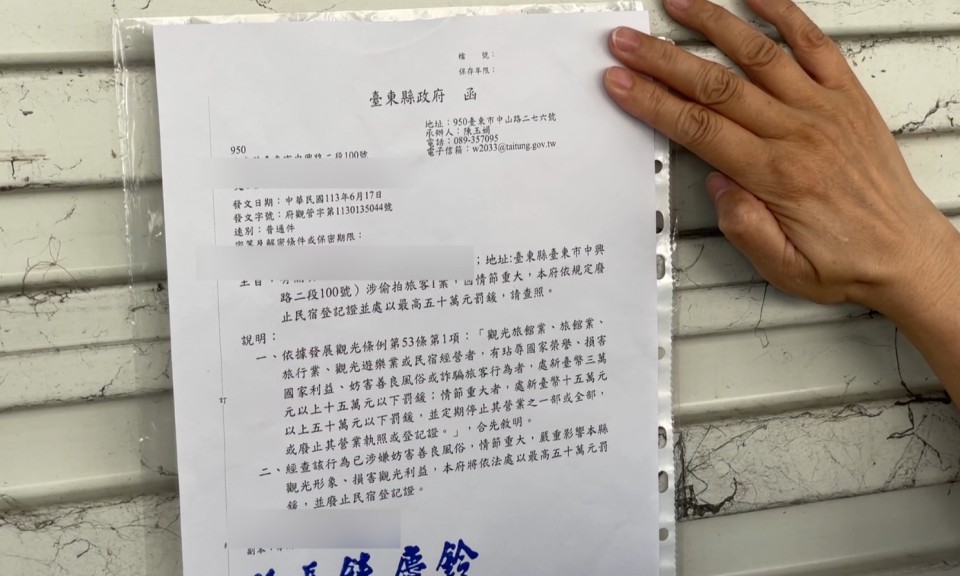 檔　　號：
保存年限：
臺東縣政府　函
地址：950臺東市中山路二七六號
承辦人：陳玉娟
電話：089-357095
電子信箱：w2033@taitung.gov.tw
950
二段100號
發文日期：中華民國113年6月17日
發文字號：府觀管字第1130135044號
速別：普通件
密等及解密條件或保密期限：
；地址:臺東縣臺東市中興
路二段100號）涉偷拍旅客1案，因情節重大，本府依規定廢
止民宿登記證並處以最高五十萬元罰鍰，請查照。
說明：
一、依據發展觀光條例第53條第1項：「觀光旅館業、旅館業、
旅行業、觀光遊樂業或民宿經營者，有玷辱國家榮譽、損害
國家利益、妨害善良風俗或詐騙旅客行為者，處新臺幣三萬
元以上十五萬元以下罰鍰；情節重大者，處新臺幣十五萬元
以上五十萬元以下罰鍰，並定期停止其營業之一部或全部，
或廢止其營業執照或登記證。」，合先敘明。
二、經查該行為已涉嫌妨害善良風俗，情節重大，嚴重影響本縣
觀光形象、損害觀光利益，本府將依法處以最高五十萬元罰
鍰，並廢止民宿登記證。
訂
副本：
長饒慶鈴